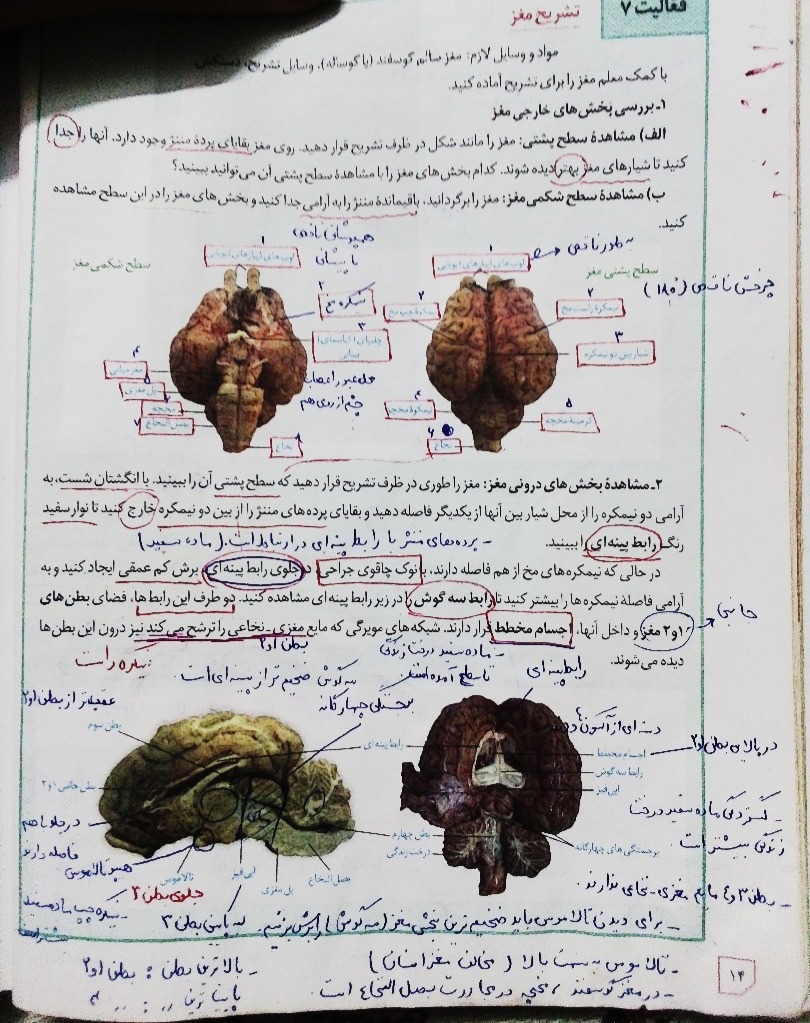 فعالیت ۷
تشریح مغز
مواد و وسایل لازم: مغز سالم گوسفند (یا گوساله)، وسایل تشریح، دستکش
با کمک معلم مغز را برای تشریح آماده کنید.
۱ـ بررسی بخش‌های خارجی مغز
الف) مشاهدهٔ سطح پشتی: مغز را مانند شکل در ظرف تشریح قرار دهید. روی مغز بقایای پردهٔ مننژ وجود دارد. آنها را جدا
کنید تا شیارهای مغز بهتر دیده شوند. کدام بخش‌های مغز را با مشاهدهٔ سطح پشتی آن می‌توانید ببینید؟
ب) مشاهدهٔ سطح شکمی مغز: مغز را برگردانید، باقیماندهٔ مننژ را به آرامی جدا کنید و بخش‌های مغز را در این سطح مشاهده
کنید.
همپوشانی ناقص
با پیشانی
به طور ناقص
چرخش ناقص (۱۸۰°)
سطح شکمی مغز
سطح پشتی مغز
۱
لوب‌های (پیازهای) بویایی
۲
نیمکره مخ
۳
چلیپای (کیاسمای) بینایی
محل عبور اعصاب
چشم از روی هم
مغز میانی
پل مغزی
مخچه
۷
بصل النخاع
نخاع
۱
لوب‌های (پیازهای) بویایی
۲
نیمکرهٔ چپ مخ
۲
نیمکرهٔ راست مخ
۳
شیار بین دو نیمکره
نیمکرهٔ مخچه
۵
کرمینهٔ مخچه
۶
نخاع
۲ـ مشاهدهٔ بخش‌های درونی مغز: مغز را طوری در ظرف تشریح قرار دهید که سطح پشتی آن را ببینید. با انگشتان شست، به
آرامی دو نیمکره را از محل شیار بین آنها از یکدیگر فاصله دهید و بقایای پرده‌های مننژ را از بین دو نیمکره خارج کنید تا نوار سفید
رنگ رابط پینه‌ای را ببینید.
ـ پرده‌های مننژ با رابط پینه‌ای در ارتباط است. (ماده سفید)
در حالی که نیمکره‌های مخ از هم فاصله دارند، با نوک چاقوی جراحی، در جلوی رابط پینه‌ای، برش کم عمقی ایجاد کنید و به
آرامی فاصلهٔ نیمکره‌ها را بیشتر کنید تا رابط سه گوش را در زیر رابط پینه‌ای مشاهده کنید. دو طرف این رابط‌ها، فضای بطن‌های
۱و۲ مغز و داخل آنها، اجسام مخطط قرار دارند. شبکه‌های مویرگی که مایع مغزی ـ نخاعی را ترشح می‌کند نیز درون این بطن‌ها
دیده می‌شوند.
جانبی
بطن ۱و۲
نیمکره راست
ـ ماده سفید درخت زندگی
تا سطح آمده است
رابط پینه‌ای
سه گوش ضخیم تر از پینه ای است
عقب‌تر از بطن ۱و۲
برجستگی چهارگانه
دسته‌ای از آکسون‌ها
در بالای بطن ۱و۲
بطن سوم
رابط پینه‌ای
بطن جانبی ۱و۲
اجسام مخطط
رابط سه‌گوش
اپی‌فیز
بطن چهارم
درخت زندگی
برجستگی‌های چهارگانه
تالاموس
اپی‌فیز
پل مغزی
بصل النخاع
فاصله دارند
هیپوتالاموس
جلوی بطن ۳
ـ گستردگی ماده سفید درخت
زندگی بیشتر است
ـ بطن ۳ و ۴ مایع مغزی ـ نخاعی ندارند.
ـ برای دیدن تالاموس باید ضخیم ترین بخش مغز (سه گوش) را برش بزنیم.
پایین بطن ۳
ـ تالاموس به سمت بالا (مخالف مغز انسان)
ـ در مغز گوسفند، مخچه در مجاورت بصل النخاع است.
ـ بالاترین بطن: بطن ۱و۲
پایین‌ترین // : // ۴
۱۴